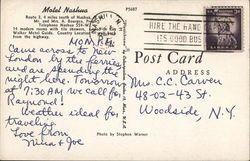 Motel Nashua
Route 3, 4 miles south of Nashua,
Mr. and Mrs. A. Bourque, Props.
Telephone Nashua
14 modern rooms with tile showers,
Walker Motel Guide. Country Location
from the highway.
P5687
HIRE THE HAND
IT'S GOOD BUS
HOME
Came across to New
London by the ferries
and are spending the
night here. Tomorrow
at 7:30 AM we call for
Raymond!
Weather ideal for
traveling.
Love from
Nina & Joe
Post Card
ADDRESS
Mrs. C.C. Carven
48-02-43 St.
Woodside, N.Y.
Photo by Stephen Warner